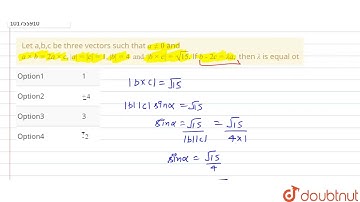 101755910
Let a,b,c be three vectors such that a ≠ 0 and
a × b = 2a × c, |a| = |c| = 1, |b| = 4 and |b × c| = √15. If b - 2c = λa, then λ is equal ot
Option1 1
Option2 ±4
Option3 3
Option4 -2
|b×c| = √15
|b||c| sinα = √15
sinα = √15 / |b||c| = √15 / 4×1
sinα = √15 / 4
doubtnut